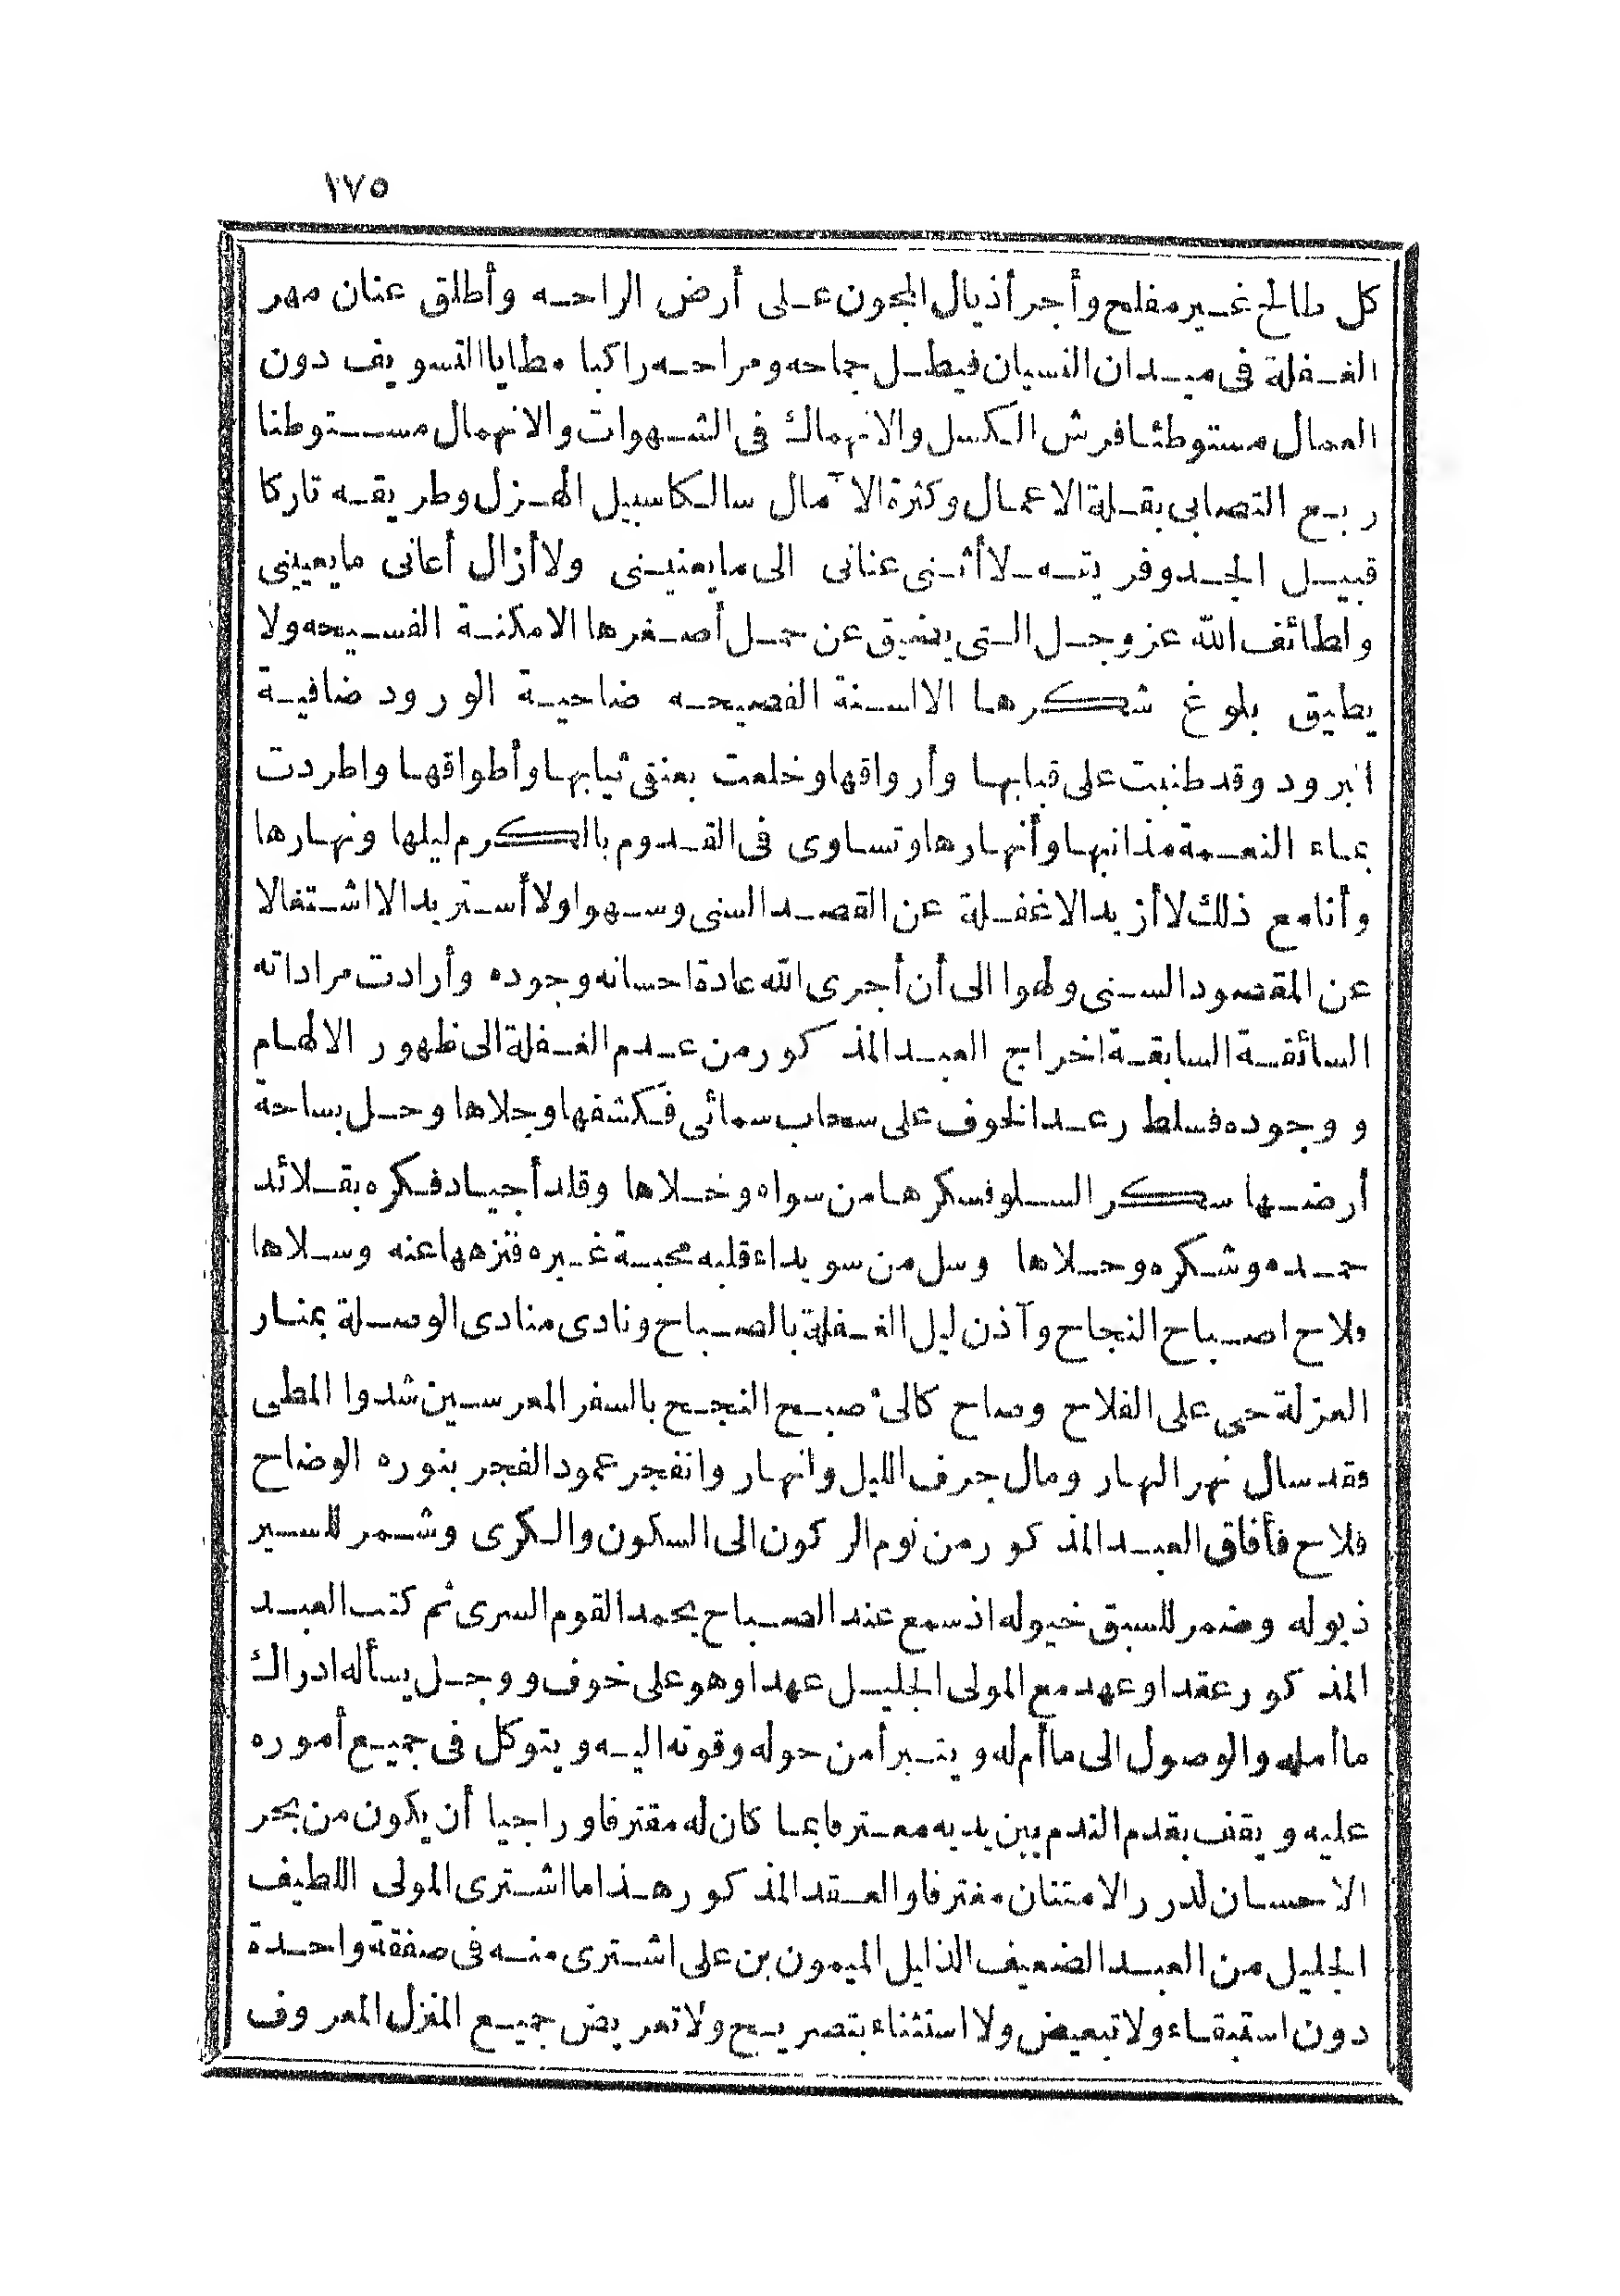 ١٧٥
كل طالح غير مفلح وأجر أذيال المجون على أرض الراحه وأطلق عنان مهر
الغفلة فى ميدان النسيان فيطل جماحه ومراحه راكبا مطايا التسويف دون
العمال مستوطئا فرش الكسل والانهماك فى الشهوات والانهمال مستوطنا
ربع التصابى بقلة الاعمال وكثرة الآمال سالكا سبيل الهزل وطريقه تاركا
قبيل الجد وفريقه لا أثنى عنانى الى ما يعنينى ولا أزال أعانى ما يعيينى
ولطائف الله عز وجل التى يضيق عن حمل أصغرها الامكنة الفسيحه ولا
يطيق بلوغ شكرها الالسنة الفصيحه ضاحية الورود ضافية
البرود وقد طنبت على قبابها وأرواقها وخلعت بعنقى ثيابها وأطواقها واطردت
بماء النعمة مذانبها وأنهارها وتساوى فى القدوم بالكرم ليلها ونهارها
وأنا مع ذلك لا أزيد الا غفلة عن القصد السنى وسهوا ولا أستزيد الا اشتغالا
عن المقصود السنى ولهوا الى أن أجرى الله عادة احسانه وجوده وأرادت مراداته
السائقة السابقة اخراج العبد المذكور من عدم الغفلة الى ظهور الالهام
ووجوده فسلط رعد الخوف على سحاب سمائى فكشفها وجلاها وحل بساحة
أرضها سكر السلو فسكرها من سواه وخلاها وقلد أجياد فكره بقلائد
حمده وشكره وحلاها وسل من سويداء قلبه محبة غيره فنزهها عنه وسلاها
فلاح اصباح النجاح وآذن ليل الغفلة بالصباح ونادى منادى الوصلة بمنار
العزلة حى على الفلاح وصاح كالئ صبح النجح بالسفر المعرسين شدوا المطى
فقد سال نهر النهار ومال جرف الليل وانهار وانفجر عمود الفجر بنوره الوضاح
فلاح فأفاق العبد المذكور من نوم الركون الى السكون والكرى وشمر للسير
ذيوله وضمر للسبق خيوله اذ سمع عند الصباح يحمد القوم السرى ثم كتب العبد
المذكور عقدا وعهد مع المولى الجليل عهدا وهو على خوف ووجل يسأله ادراك
ما أمله والوصول الى ما أم له ويتبرأ من حوله وقوته اليه ويتوكل فى جميع أموره
عليه ويقف بقدم الندم بين يديه معترفا بما كان له مقترفا وراجيا أن يكون من بحر
الاحسان لدرر الامتنان مغترفا والعقد المذكور هذا ما اشترى المولى اللطيف
الجليل من العبد الضعيف الذليل الميمون بن على اشترى منه فى صفقة واحدة
دون استبقاء ولا تبعيض ولا استثناء بتصريح ولا تعريض جميع المنزل المعروف